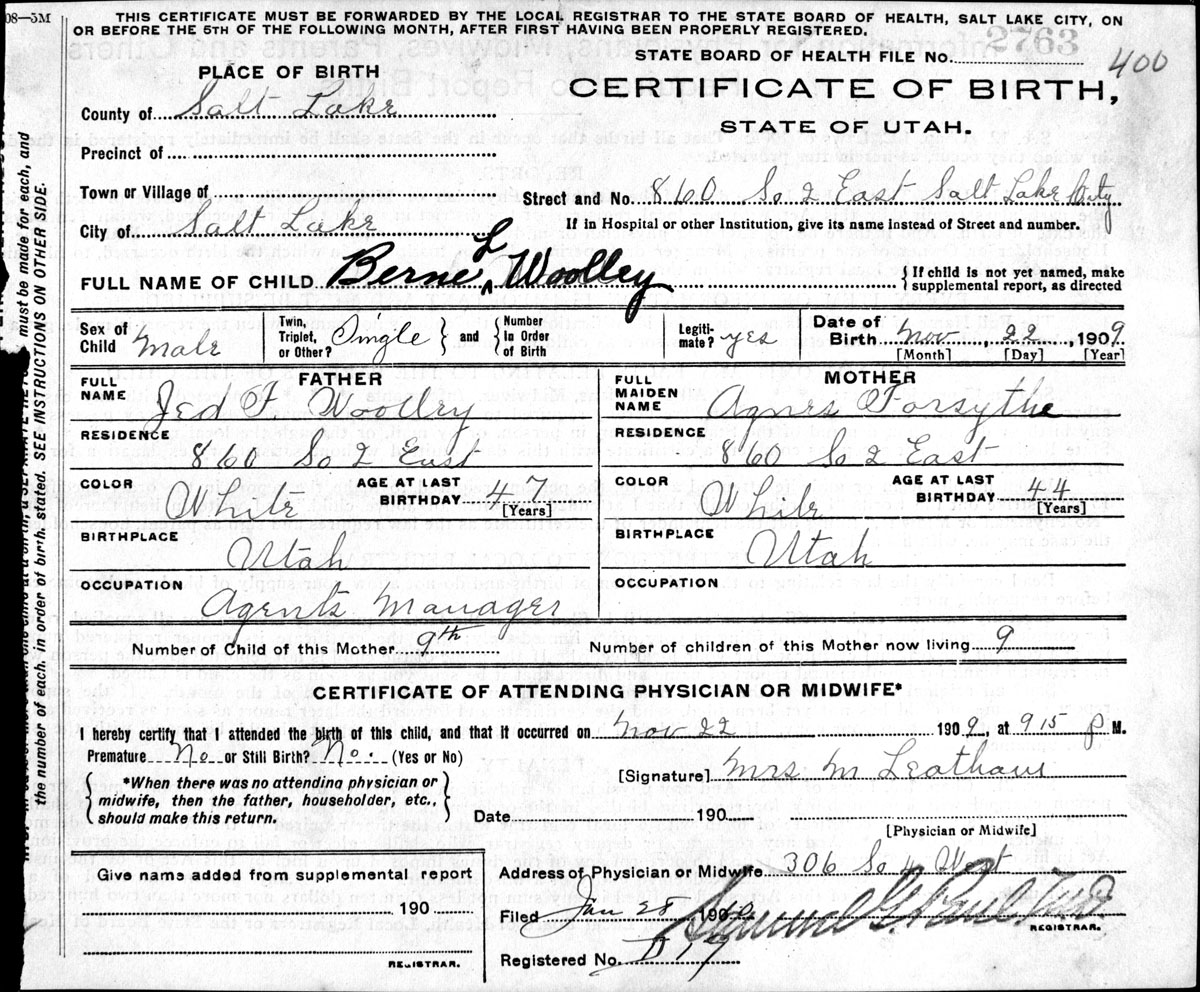 08—5M
THIS CERTIFICATE MUST BE FORWARDED BY THE LOCAL REGISTRAR TO THE STATE BOARD OF HEALTH, SALT LAKE CITY, ON
OR BEFORE THE 5TH OF THE FOLLOWING MONTH, AFTER FIRST HAVING BEEN PROPERLY REGISTERED.
STATE BOARD OF HEALTH FILE NO. 2763
400
PLACE OF BIRTH
CERTIFICATE OF BIRTH,
STATE OF UTAH.
County of Salt Lake
Precinct of
Town or Village of
Street and No. 860 So 2 East Salt Lake City
City of Salt Lake
If in Hospital or other Institution, give its name instead of Street and number.
FULL NAME OF CHILD Berne L Woolley
{If child is not yet named, make
supplemental report, as directed
Sex of Child Male
Twin, Triplet, or Other? Single } and { Number In Order of Birth
Legitimate? yes
Date of Birth Nov 22, 1909
[Month] [Day] [Year]
FATHER
FULL NAME Jed F Woolley
RESIDENCE 860 So 2 East
COLOR White
AGE AT LAST BIRTHDAY 47
[Years]
BIRTHPLACE Utah
OCCUPATION Agents Manager
MOTHER
FULL MAIDEN NAME Agnes Forsythe
RESIDENCE 860 So 2 East
COLOR White
AGE AT LAST BIRTHDAY 44
[Years]
BIRTHPLACE Utah
OCCUPATION
Number of Child of this Mother 9th
Number of children of this Mother now living 9
CERTIFICATE OF ATTENDING PHYSICIAN OR MIDWIFE*
I hereby certify that I attended the birth of this child, and that it occurred on Nov 22 1909, at 9 15 P M.
Premature No or Still Birth? No. (Yes or No)
{*When there was no attending physician or
midwife, then the father, householder, etc.,
should make this return.}
[Signature] Mrs M Leatham
Date 190
[Physician or Midwife]
Give name added from supplemental report
190
REGISTRAR.
Address of Physician or Midwife 306 So 4 West
Filed Jan 28 190
REGISTRAR.
Registered No.
must be made for each, and
the number of each, in order of birth, stated. SEE INSTRUCTIONS ON OTHER SIDE.